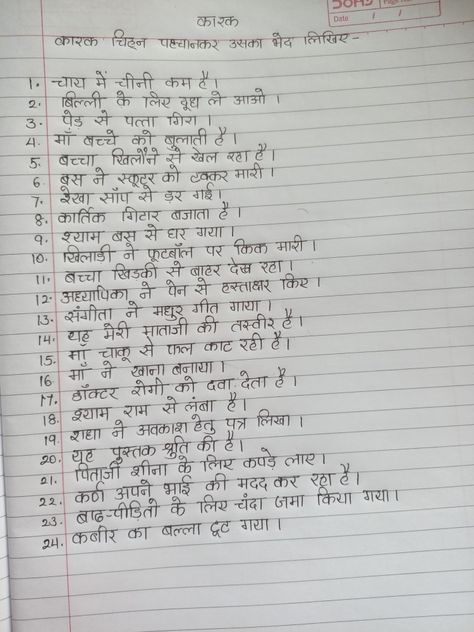 Date
कारक
कारक चिह्न पहचानकर उसका भेद लिखिए -
1. चाय में चीनी कम है।
2. बिल्ली के लिए दूध ले आओ।
3. पेड से पत्ता गिरा।
4. माँ बच्चे को बुलाती है।
5. बच्चा खिलौने से खेल रहा है।
6. बस ने स्कूटर को टक्कर मारी।
7. रेखा साँप से डर गई।
8. कार्तिक गिटार बजाता है।
9. श्याम बस से घर गया।
10. खिलाडी ने फूटबॉल पर किक मारी।
11. बच्चा खिडकी से बाहर देख रहा।
12. अध्यापिका ने पेन से हस्ताक्षर किए।
13. संगीता ने मधुर गीत गाया।
14. यह मेरी माताजी की तस्वीर है।
15. माँ चाकू से फल काट रही है।
16. माँ ने खाना बनाया।
17. डॉक्टर रोगी को दवा देता है।
18. श्याम राम से लंबा है।
19. राधा ने अवकाश हेतु पत्र लिखा।
20. यह पुस्तक श्रुति की है।
21. पिताजी शीना के लिए कपडे लाए।
22. कर्ण अपने भाई की मदद कर रहा है।
23. बाढ-पीडितो के लिए चंदा जमा किया गया।
24. कबीर का बल्ला टूट गया।